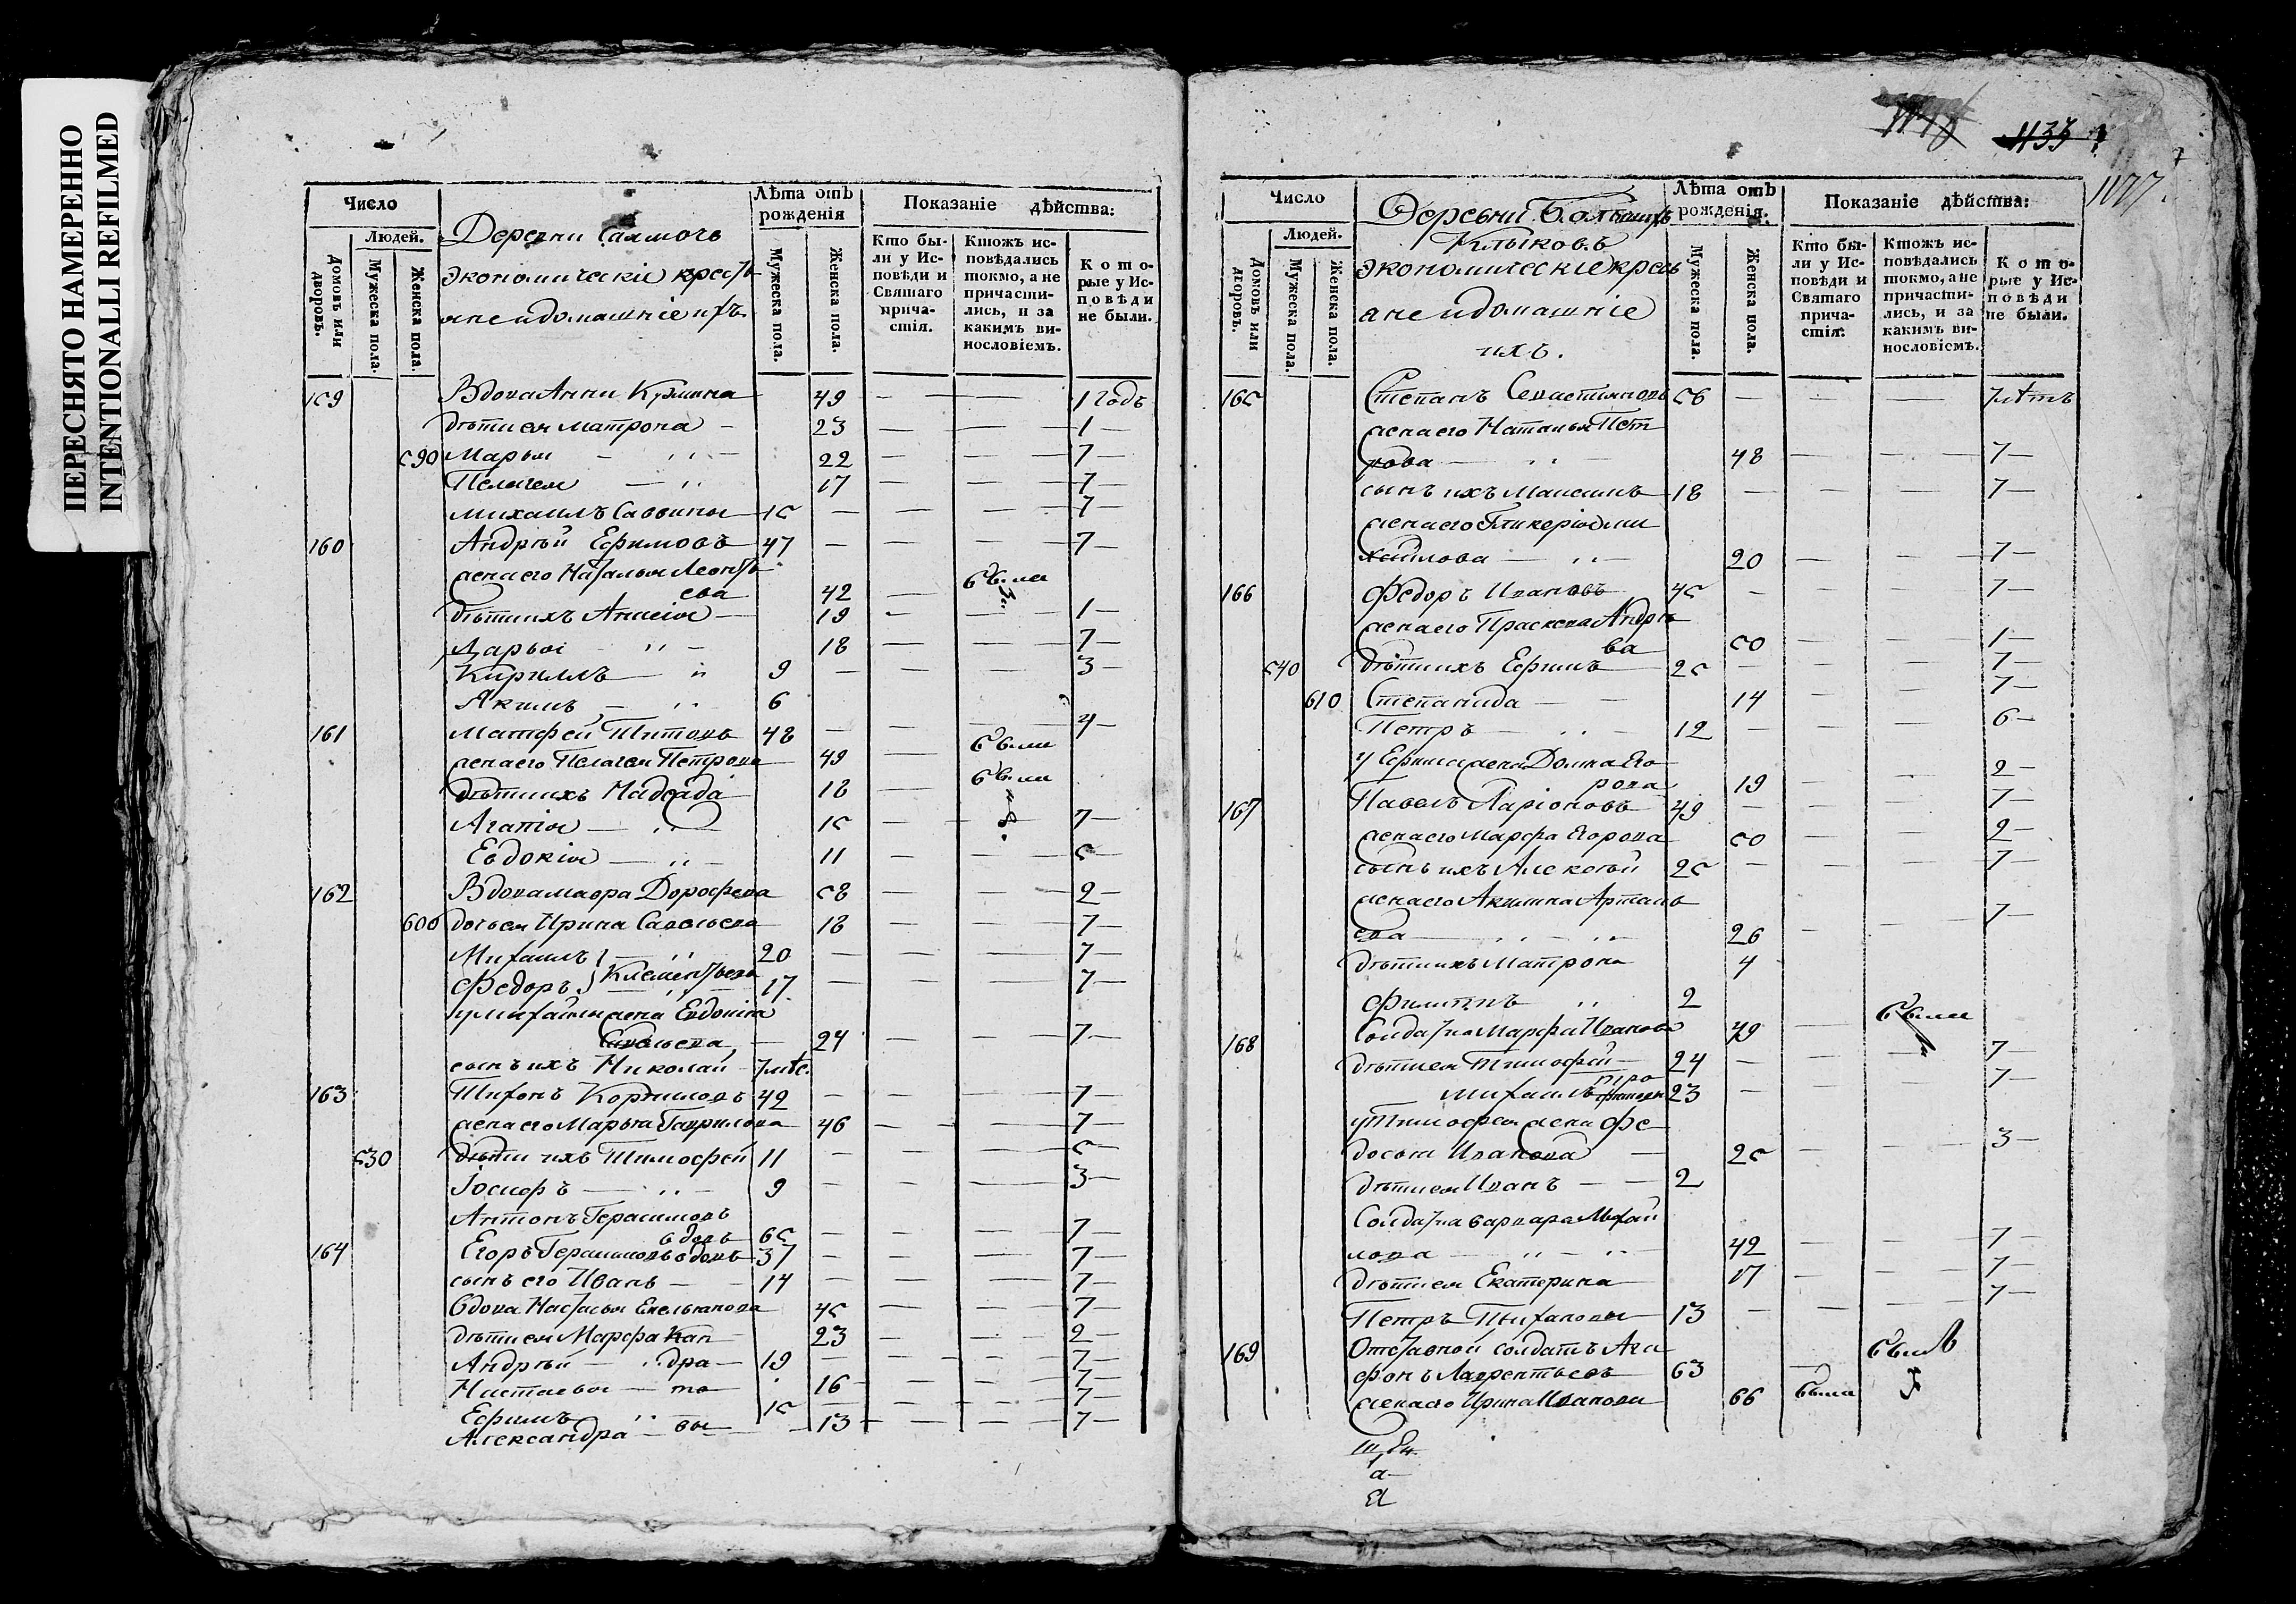 ПЕРЕСНЯТО НАМЕРЕННО
INTENTIONALLI REFILMED
Число
Людей.
Домовъ или дворовъ.
Мужеска пола.
Женска пола.
Деревни
экономическіе кресть
яне и домашніе ихъ
Лѣта отъ рожденія
Мужеска пола.
Женска пола.
Показаніе дѣйства:
Кто бы-
ли у Ис-
повѣди и
Святаго
прича-
стія.
Ктожъ ис-
повѣдались
токмо, а не
причасти-
лись, и за
какимъ ви-
нословіемъ.
Кото-
рые у Ис-
повѣди
не были.
159 Вдова Анна 49 — — 1 годъ
дѣти ея Матрона — 23 — — 1 —
590 Марья — 22 — — 7 —
Пелагея — 17 — — 7 —
Михаилъ Саввины 15 — — — 7 —
160 Андрѣй Ефимовъ 47 — — — 7 —
жена его Наталья Леонть
ева 42 — были
дѣти ихъ 19 — — 1 —
Дарья 18 — — 7 —
Кирилъ 9 — — — 3 —
Якимъ 6
161 Матфей Титовъ 48 — — — 4 —
жена его Пелагея Петрова 49 — были
дѣти ихъ Надежда 18 — были
Агапія 15 — — 7 —
Евдокія 11 — — 5 —
162 Вдова Мавра Дорофеева 58 — — 2 —
600 дочь ея Ирина Савельева 18 — — 7 —
Михаилъ 20 — — — 7 —
Федоръ Клементьевы 17 — — — 7 —
у Михайлы жена Евдокія
Савельева 24 — — 7 —
сынъ ихъ Николай 7 мѣс.
163 Тихонъ Корниловъ 42 — — — 7 —
жена его Марья Гаврилова 46 — — 7 —
530 дѣти ихъ Тимофей 11 — — — 5 —
Іосифъ 9 — — — 3 —
Антонъ Герасимовъ
вдовъ 65 — — — 7 —
164 Егоръ Герасимовъ вдовъ 37 — — — 7 —
сынъ его Иванъ 14 — — — 7 —
Вдова Настасья Емельянова 45 — — 7 —
дѣти ея Марфа Кан 23 — — 2 —
Андрѣй дра 19 — — — 7 —
Настасья та 16 — — 7 —
Ефимъ 15 — — — 7 —
Александра вы 13 — — 7 —
1135
1177.
Число
Людей.
Домовъ или дворовъ.
Мужеска пола.
Женска пола.
Деревни Большихъ
Клыковъ
экономическіе кресть
яне и домашніе
ихъ.
Лѣта отъ рожденія.
Мужеска пола.
Женска пола.
Показаніе дѣйства:
Кто бы-
ли у Ис-
повѣди и
Святаго
прича-
стія.
Ктожъ ис-
повѣдались
токмо, а не
причасти-
лись, и за
какимъ ви-
нословіемъ.
Кото-
рые у Ис-
повѣди
не были.
165 Степанъ Севастьяновъ 56 — — — 7 лѣтъ
жена его Наталья Пет
рова 48 — — 7 —
сынъ ихъ Максимъ 18 — — — 7 —
жена его Гликерія Ми
хайлова 20 — — 7 —
166 Федоръ Ивановъ 45 — — — 7 —
жена его Прасковья Андрѣе
ва 50 — — 1 —
540 дѣти ихъ Ефимъ 25 — — — 7 —
610 Степанида 14 — — 7 —
Петръ 12 — — — 6 —
у Ефима жена Домна Его
рова 19 — — 2 —
167 Павелъ Ларіоновъ 49 — — — 7 —
жена его Марфа Егорова 50 — — 2 —
сынъ ихъ Алексѣй 25 — — — 7 —
жена его Акилина Артамь
ева 26 — — 7 —
дѣти ихъ Матрона 4
Филиппъ 2
168 Солдатка Марфа Иванова 49 — были
дѣти ея Тимофей 24 — — — 7 —
Михаилъ Трофимовы 23 — — — 7 —
у Тимофея жена Фе
досья Иванова 25 — — 3 —
дѣти ея Иванъ 2
Солдатка Варвара Михай
лова 42 — — 7 —
дѣти ея Екатерина 17 — — 7 —
Петръ Тихановы 13 — — — 7 —
169 Отставной солдатъ Ага
фонъ Лаврентьевъ 63 — былъ
жена его Ирина Иванова 66 была